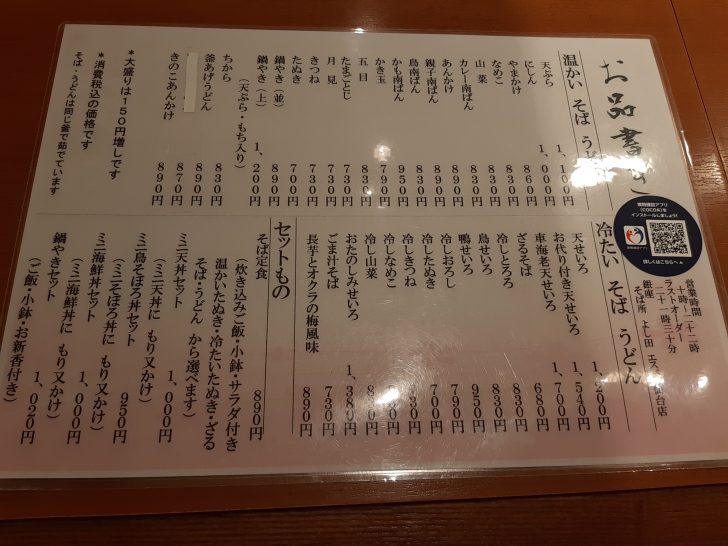 お品書き
温かい そば うどん
天ぷら 1,100円
にしん 1,000円
やまかけ 860円
なめこ 830円
山菜 830円
カレー南ばん
あんかけ
親子南ばん
鳥南ばん
かも南ばん 950円
かき玉
五目
たまごとじ 730円
月見 730円
きつね 730円
たぬき 700円
鍋やき（並） 890円
鍋やき（上） 1,200円
（天ぷら・もち入り）
ちから 830円
釜あげうどん 890円
870円
きのこあんかけ 890円
＊大盛りは150円増しです
＊消費税込の価格です
そば・うどんは同じ釜で茹でています
接触確認アプリ
(COCOA)を
インストールしましょう!
詳しくはこちらへ▲
営業時間
十時～二十二時
ラストオーダー
二十一時三十分
銀座
そば所 よし田
冷たい そば うどん
天せいろ 1,200円
お代り付き天せいろ 1,540円
車海老天せいろ 1,680円
ざるそば 700円
冷しとろろ 830円
鳥せいろ 830円
鴨せいろ 950円
冷しおろし
冷したぬき
冷しきつね
冷しなめこ
冷し山菜
おたのしみせいろ
ごま汁そば 730円
長芋とオクラの梅風味 890円
セットもの
そば定食 890円
（炊き込みご飯・小鉢・サラダ付き
温かいたぬき・冷たいたぬき・ざる
そば・うどん から選べます）
ミニ天丼セット 1,000円
（ミニ天丼に もり又かけ）
ミニ鳥そぼろ丼セット 950円
（ミニそぼろ丼に もり又かけ）
ミニ海鮮丼セット 1,000円
（ミニ海鮮丼に もり又かけ）
鍋やきセット 1,020円
（ご飯・小鉢・お新香付き）